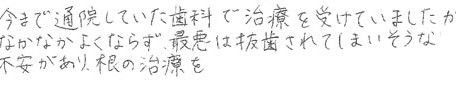 今まで通院していた歯科で治療を受けていましたが
なかなかよくならず、最悪は抜歯されてしまいそうな
不安があり、根の治療を